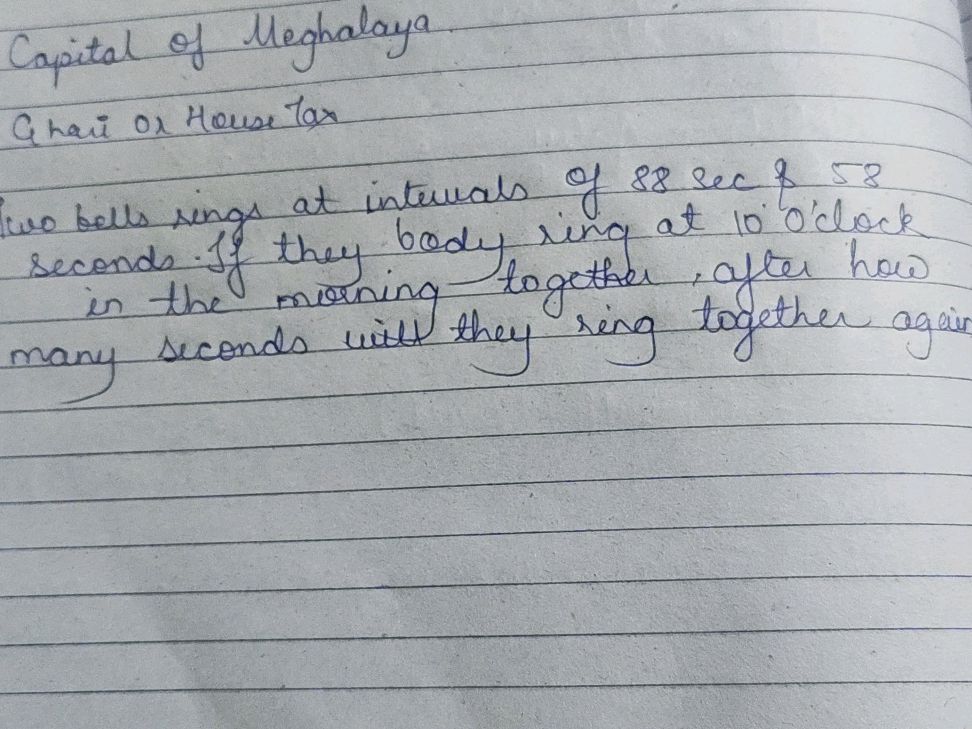 Capital of Meghalaya.
Ghari or House Tax
Two bells rings at intervals of 88 sec & 58
seconds. If they body ring at 10 O'clock
in the morning together, after how
many seconds will they ring together again